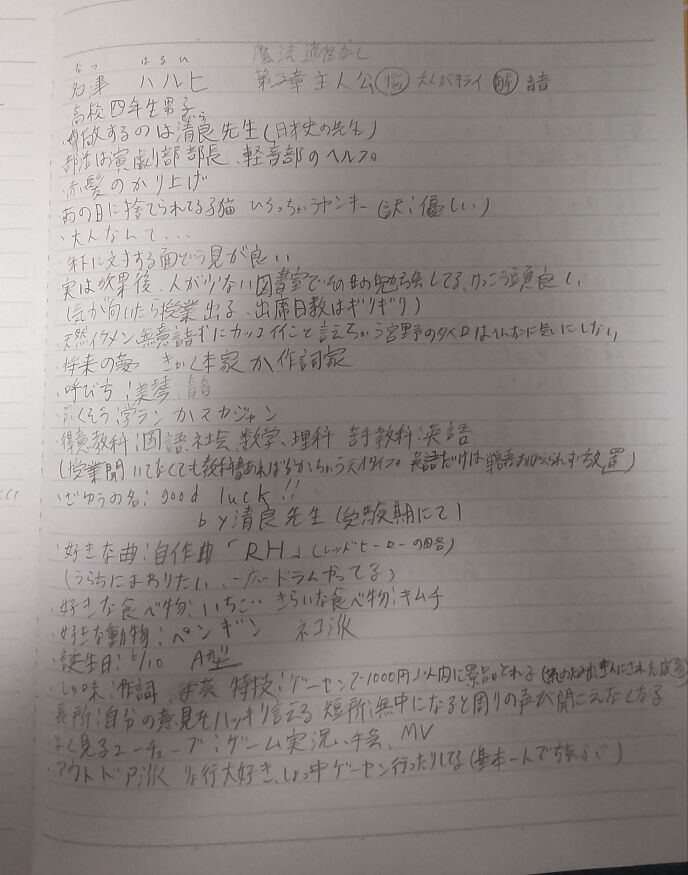 なつ はるひ 魔法適性なし
ハルヒ 第2章主人公 悩 大人がキライ 解
・高校四年生男子
・尊敬するのは清良先生(日本史の先生)
・部活は演劇部部長、軽音部のヘルプ。
・赤髪のかり上げ
・雨の日に捨てられてる子猫 ひろっちゃうヤンキー(訳:優しい)
・大人なんて...
・年下に対する面どう見が良い
・実は放課後、人が少ない図書室でその日の勉強してる、けっこう頭良し、
(気が向いたら授業出る、出席日数はギリギリ)
・天然イケメン 無意識ずにカッコイイこと言えちゃう のタイプはそんなに気にしない
・将来の夢 きゃく本家か作詞家
・呼び方:美琴
・ふくそう:学ランかスカジャン
・得意教科:国語、社会、数学、理科 苦手教科:英語
(授業聞いてなくても教科書あればわかっちゃう天才タイプ。英語だけは単語おぼえられず放置)
・ざゆうの名:good luck!!
by 清良先生(受験期にて)
・好きな曲:自作曲「RH」(レッドヒーローの略)
(うらちにまわりたい、一応ドラムやってる)
・好きな食べ物:いちご きらいな食べ物:キムチ
・好きな動物:ペンギン ネコ派
・誕生日:6/10 A型
・しゅ味:作詞、手芸 特技:ゲーセンで1000円以内に景品とれる
・長所:自分の意見をハッキリ言える 短所:無中になると周りの声が聞こえなくなる
・よく見るユーチューブ:ゲーム実況、手芸、MV
・アウトドア派 りょ行大好き、しょっ中ゲーセン行ったりしてる(基本一人で)